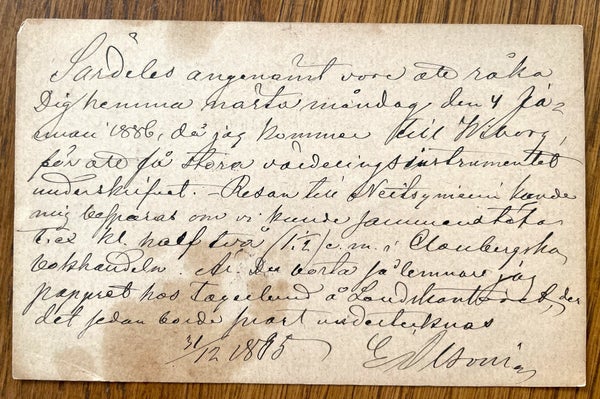 Särdeles angenämt vore att råka
Dig hemma nästa måndag den 4 Ja-
nuari 1886, då jag kommer till Wiborg,
för att få stora värderingsinstrumentet
underskrifvet. - Resan till Neitsyniemi kunde
mig besparas om vi kunde sammanträffa
t. ex kl. half två (1½) e. m. i Cloubergska
bokhandeln. Är Du borta så lemnar jag
pappret hos Tagerlund å Landtkontoret, der
det sedan borde snart undertecknas
31/12 1885